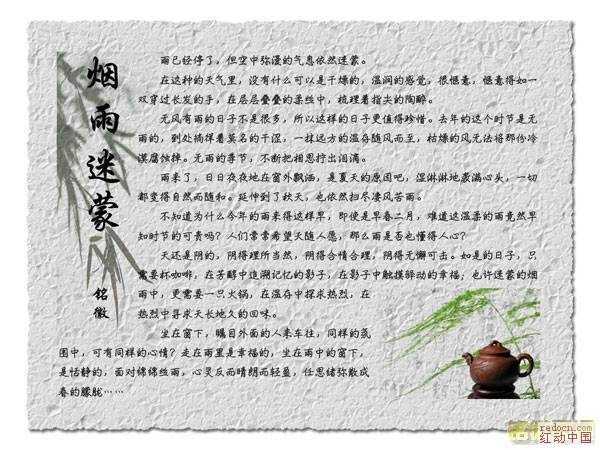 烟雨迷蒙
铭徽
雨已经停了，但空中弥漫的气息依然迷蒙。
在这种的天气里，没有什么可以是干燥的，温润的感觉，很惬意，惬意得如一
双穿过长发的手，在层层叠叠的柔丝中，梳理着指尖的陶醉。
无风有雨的日子不是很多，所以这样的日子更值得珍惜。去年的这个时节是无
雨的，到处搞笑着莫名的干涩，一抹远方的温存随风而至，枯燥的风无法将那份冷
漠腐蚀掉。无雨的季节，不断把相思拧出泪滴。
雨来了，日日夜夜地在窗外飘洒，是夏天的原因吧，湿淋淋地蓑满心头，一切
都变得自然而随和。延伸到了秋天，也依然扫尽凄风苦雨。
不知道为什么今年的雨来得这样早，即使是早春二月，难道这温柔的雨竟然早
知时节的可贵吗？人们常常希望天随人愿，那么雨是否也懂得人心？
天还是阴的，阴得理所当然，阴得合情合理，阴得无懈可击。如是的日子，只
需要杯咖啡，在芳醇中追溯记忆的影子，在影子中触摸驿动的幸福，也许迷蒙的烟
雨中，更需要一只火锅，在温存中探求热烈，在
热烈中寻求天长地久的回味。
坐在窗下，瞩目外面的人来车往，同样的氛
围中，可有同样的心情？走在雨里是幸福的，坐在雨中的窗下，
是恬静的，面对绵绵丝雨，心灵反而晴朗而轻盈，任思绪弥散成
春的朦胧……
redocn.com
红动中国